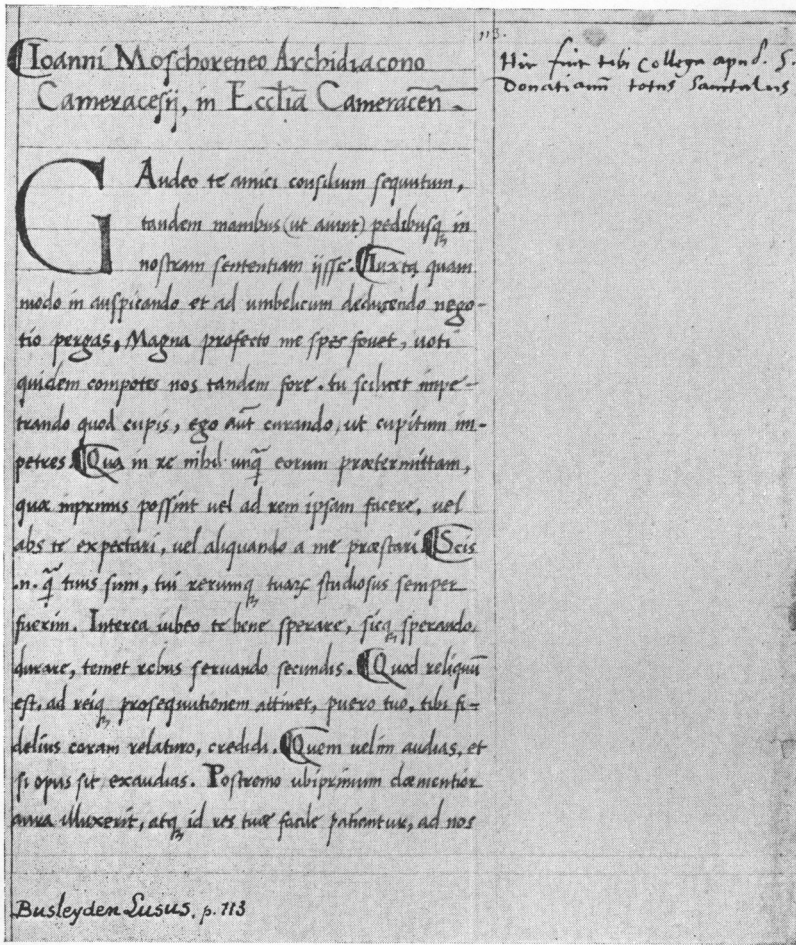 113.
Ioanni Moschoreneo Archidiacono
Cameracesij, in Eccl̄ia Cameraceñ
Hic fuit tibi Collega apud. S.
Donatianū totus
GAudeo te amici consilium sequutum,
tandem manibus (ut aiunt) pedibusq; in
nostram sententiam ijsse. Iuxtq; quam
modo in auspicando et ad umbelicum deducendo nego-
tio pergas, Magna profecto me spes fovet, uoti
quidem compotes nos tandem fore. tu scilicet impe-
trando quod cupis, ego aūt curando, ut cupitum im-
petres. Qua in re nihil unq̄ eorum prætermittam,
quæ inprimis possint uel ad rem ipsam facere, uel
abs te expectari, uel aliquando a me præstari. Scis
.n. q̄ tuus sum, tui rerumq; tuarꝝ studiosus semper
fuerim. Interea iubeo te bene sperare, sicq; sperando,
durare, temet rebus seruando secundis. Quod reliquū
est, ad reiq; prosequutionem attinet, puero tuo, tibi fi-
delius coram relaturo, credidi. Quem uelim audias, et
si opus sit, exaudias. Postremo ubiprimum clæmentior
aura illuxerit, atq; id res tuæ facile patientur, ad nos
Busleyden Lusus, p. 113